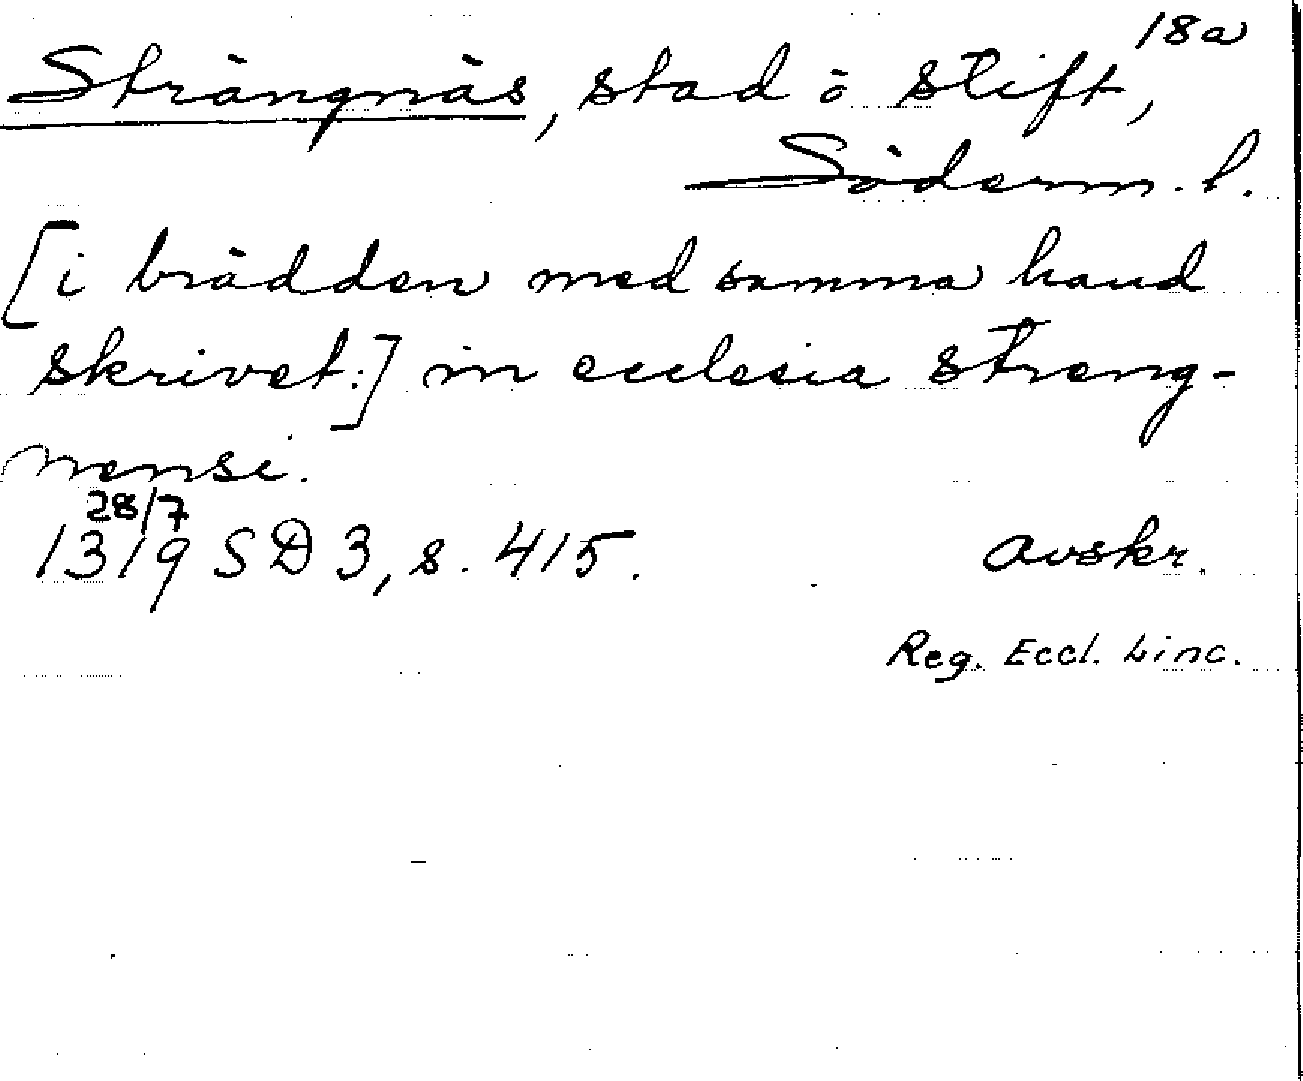 18a
Strängnäs, stad o stift,
Söderm. l.
[i brädden med samma hand
skrivet:] in ecclesia streng-
nensi.
28/7
1319 SD 3, s. 415. Avskr.
Reg. Eccl. Linc.